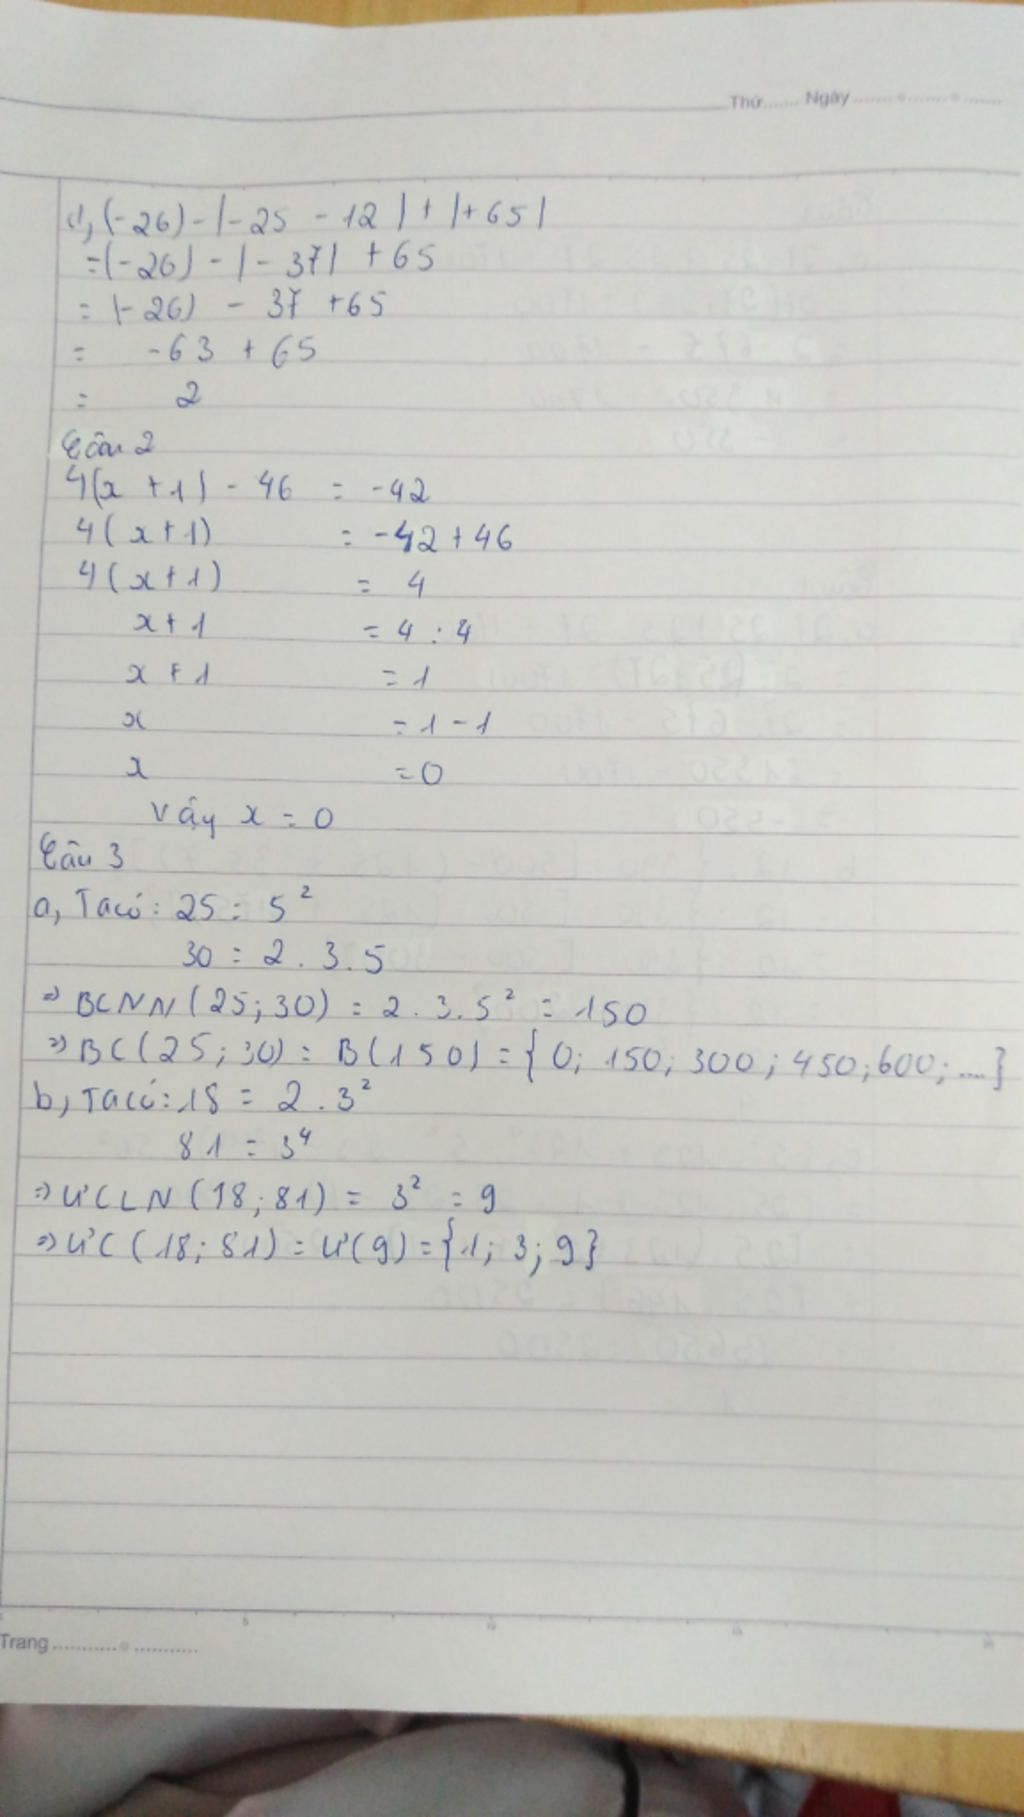 Thứ....... Ngày ..................
d, (-26) - |-25 - 12| + |+65|
= (-26) - |-37| + 65
= (-26) - 37 + 65
= -63 + 65
= 2
Câu 2
4(x + 1) - 46 = -42
4(x + 1) = -42 + 46
4(x + 1) = 4
x + 1 = 4 : 4
x + 1 = 1
x = 1 - 1
x = 0
Vậy x = 0
Câu 3
a, Ta có: 25 = 5²
30 = 2 . 3 . 5
=> BCNN(25; 30) = 2 . 3 . 5² = 150
=> BC(25; 30) = B(150) = {0; 150; 300; 450; 600; ....}
b, Ta có: 18 = 2 . 3²
81 = 3⁴
=> ƯCLN(18; 81) = 3² = 9
=> ƯC(18; 81) = Ư(9) = {1; 3; 9}
Trang ........................